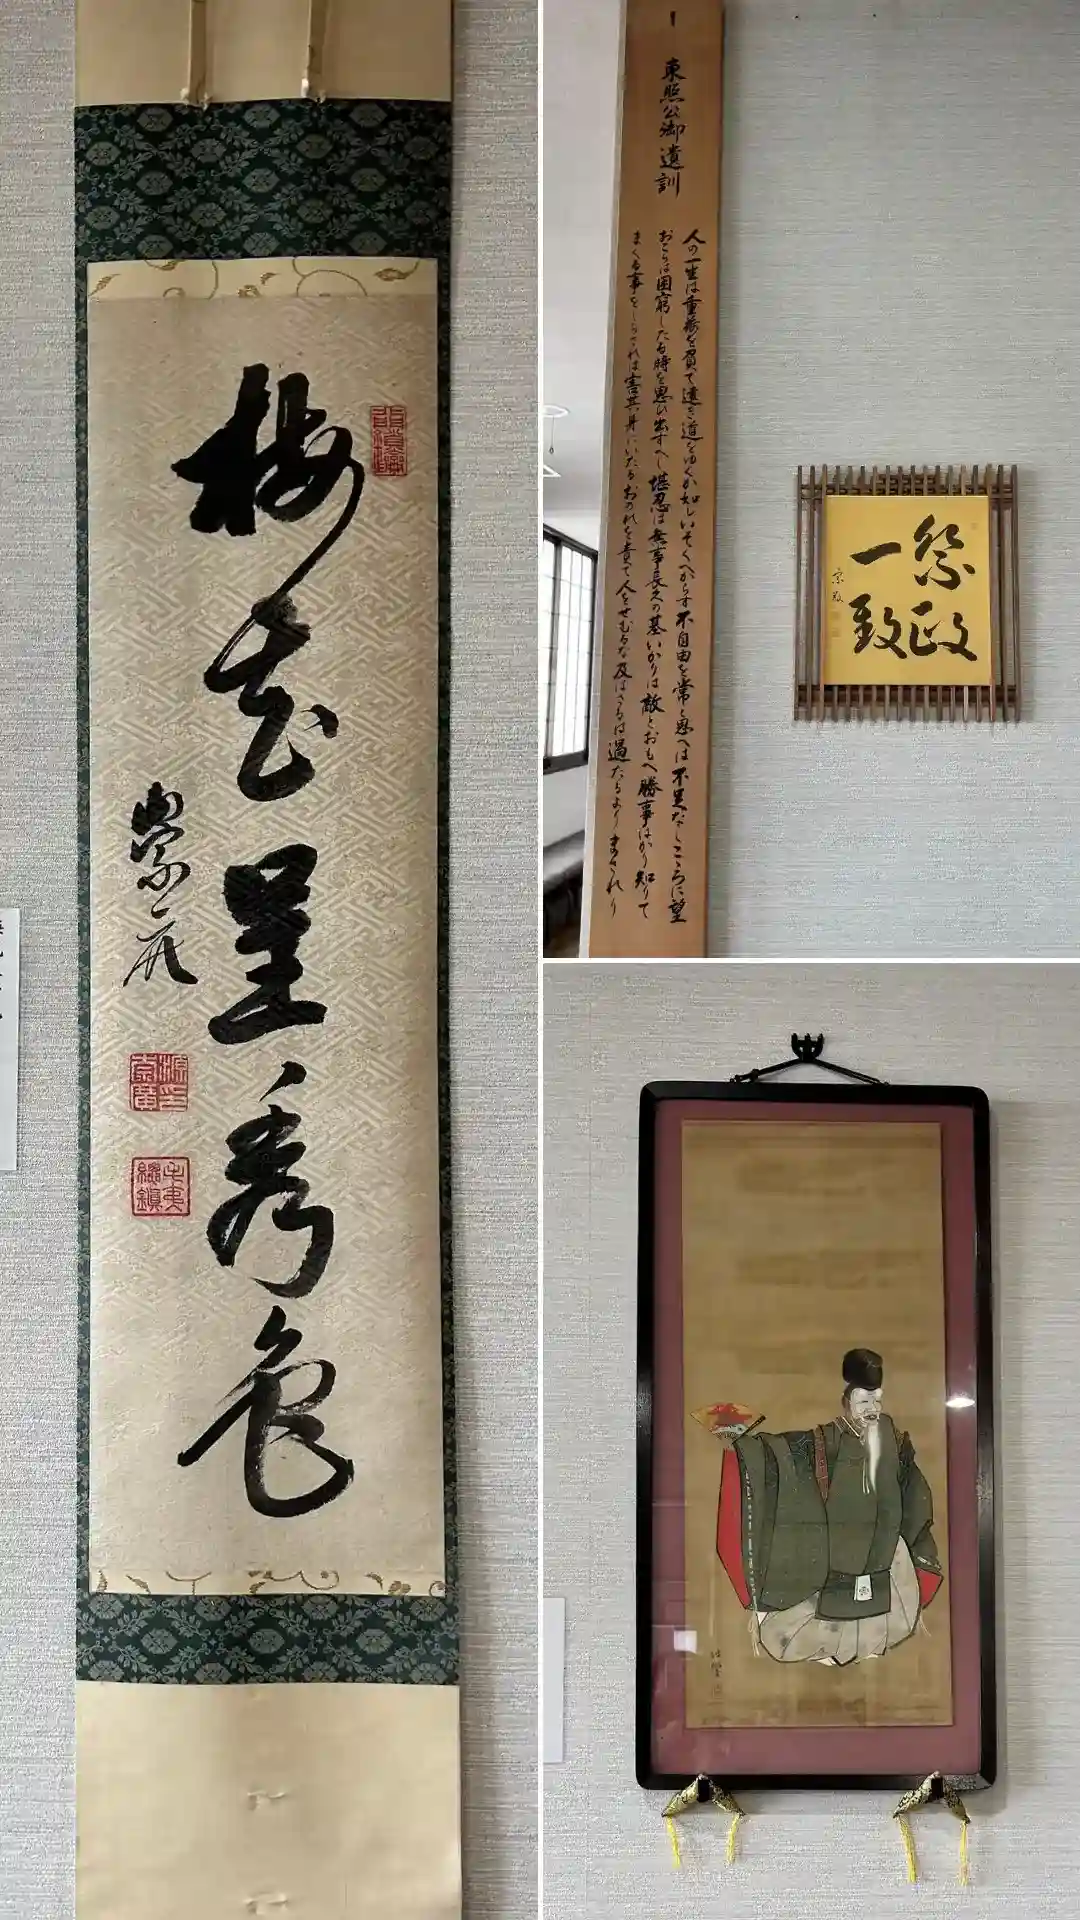 梅花呈秀色
東照公御遺訓
人の一生は重荷を負て遠き道をゆくが如しいそぐべからず不自由を常と思へば不足なしこころに望
おこらば困窮したる時を思ひ出すべし堪忍は無事長久の基いかりは敵とおもへ勝事ばかり知りて
まくる事をしらざれば害其身にいたるおのれを責て人をせむるな及ばざるは過たるよりまされり
祭政
一致